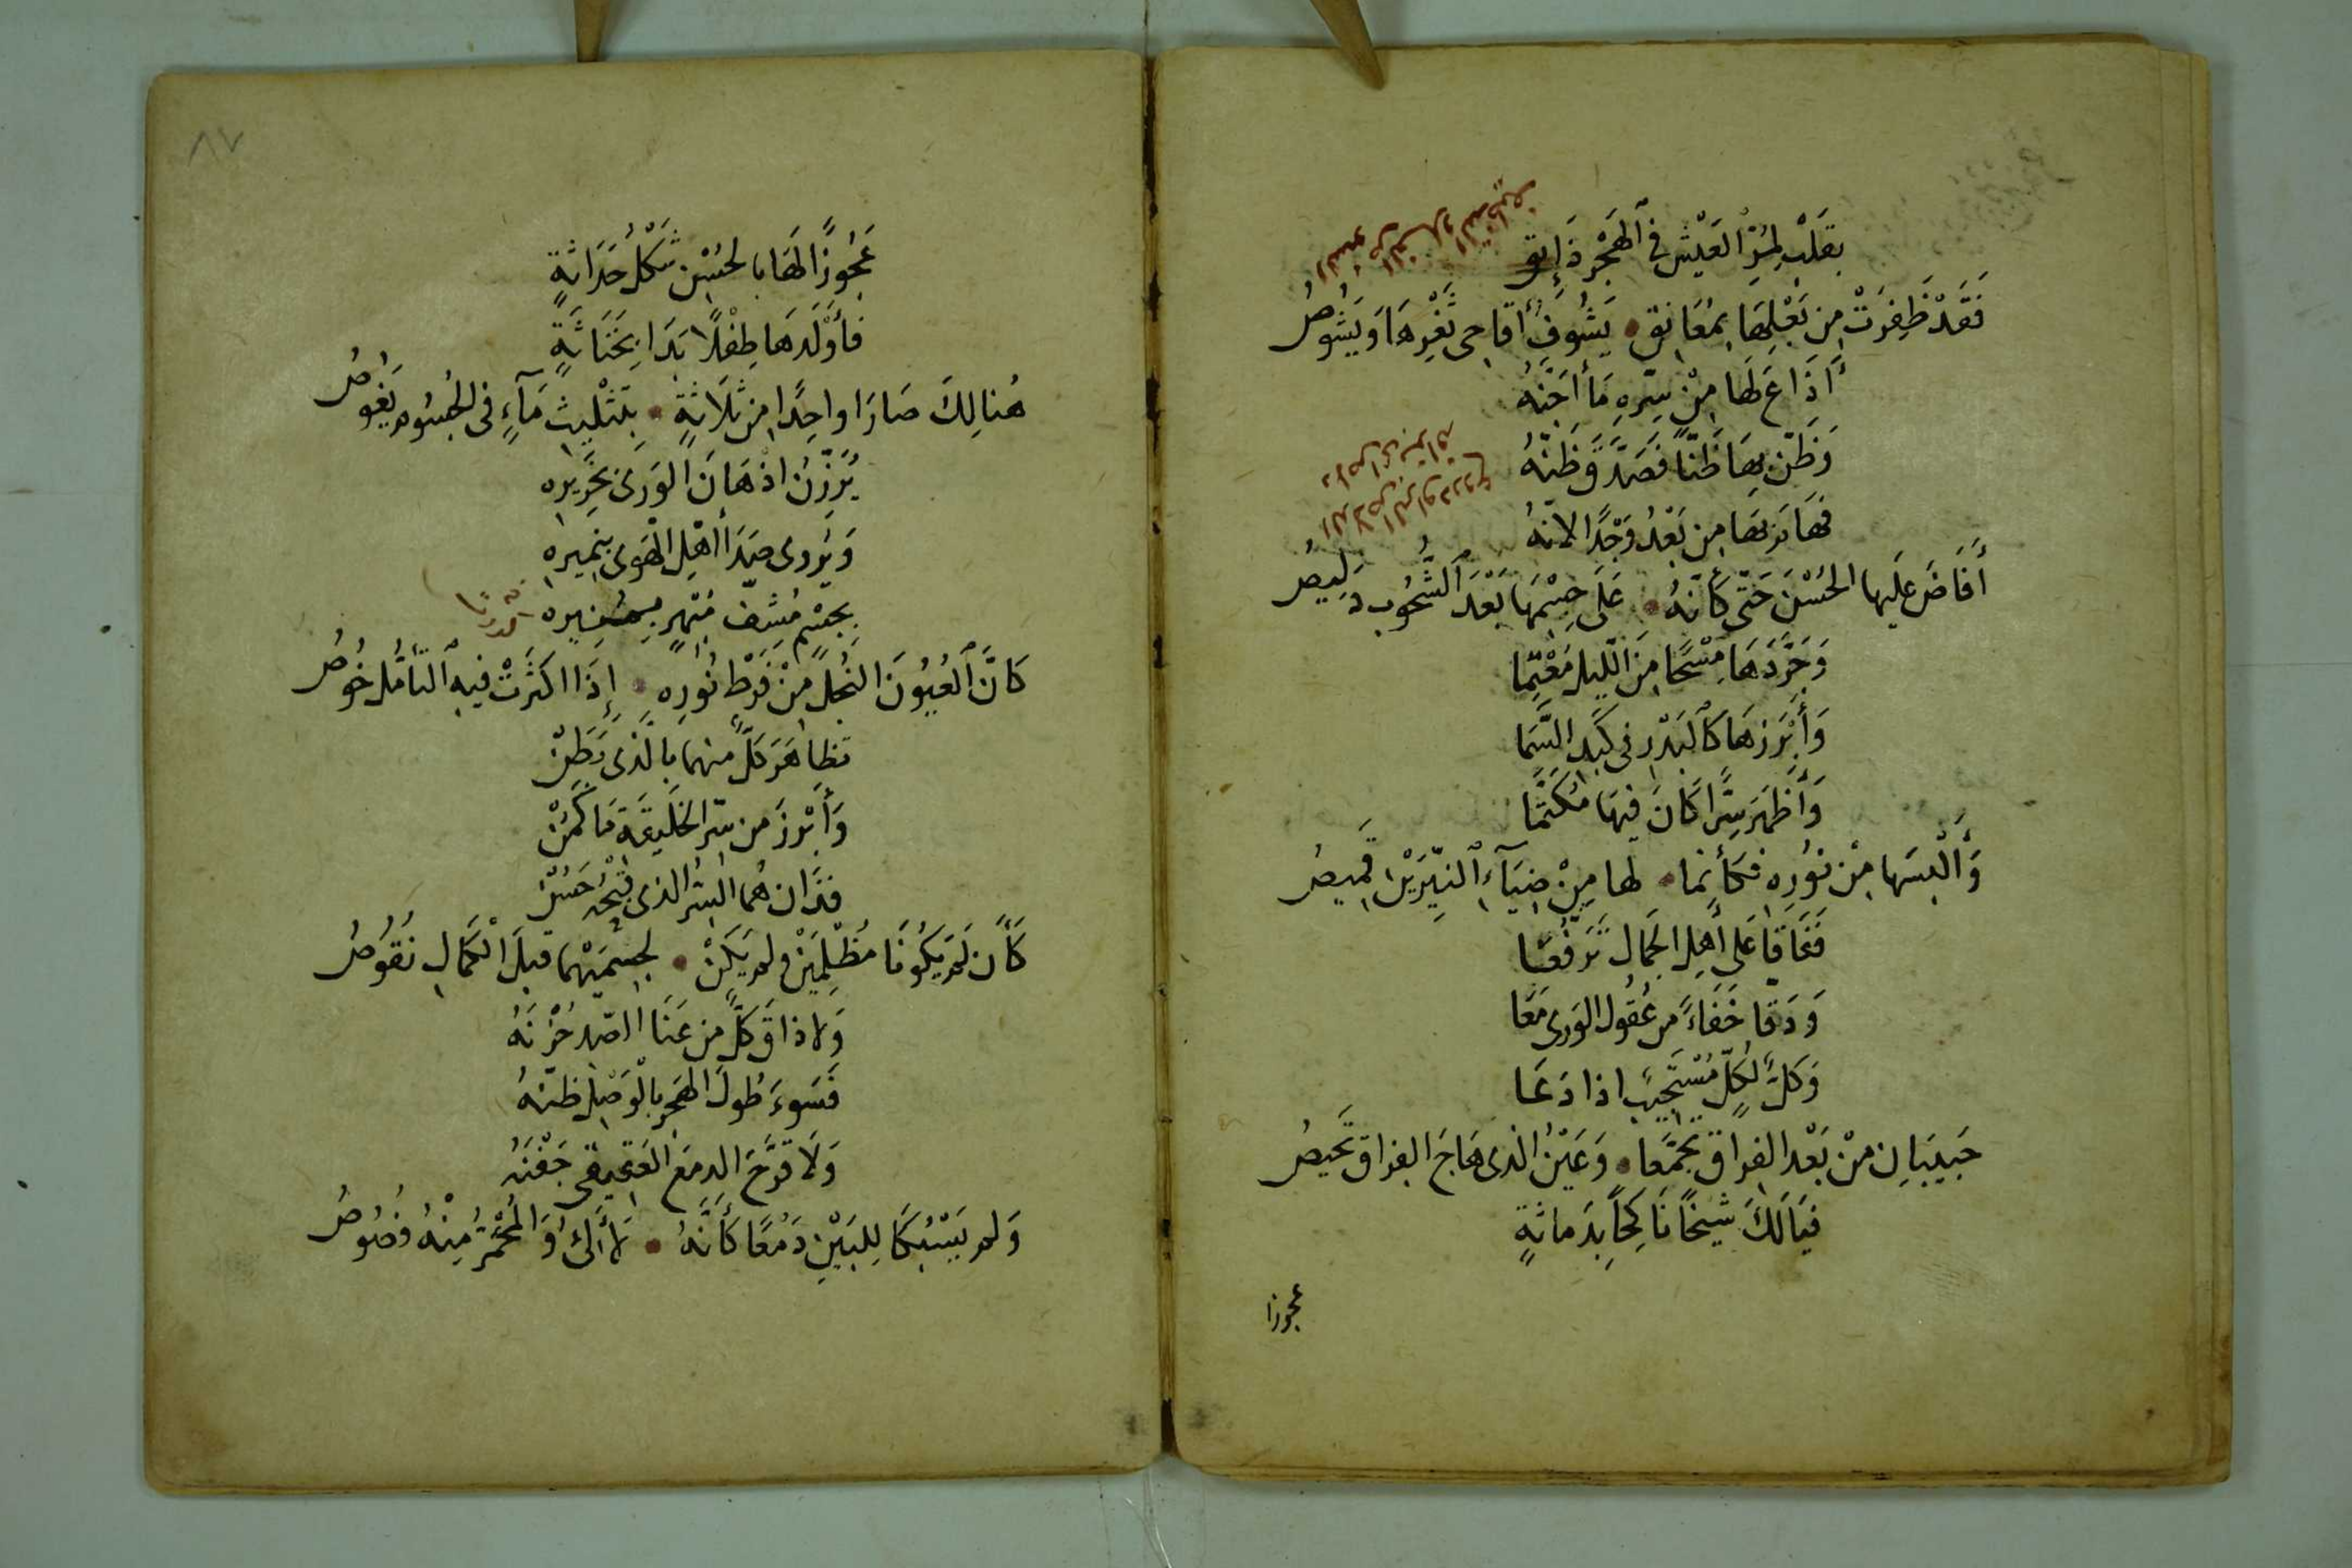 بِقَلْبٍ لِمُرِّ الْعَيْشِ فِي ٱلْهَجْرِ ذَائِقِ
فَقَدْ ظَفِرَتْ مِنْ بَعْلِهَا بِمُعَانِقٍ • يَشُوفُ أَقَاحِي ثَغْرِهَا وَيَشُوصُ
أَذَاعَ لَهَا مِنْ سِرِّهِ مَا أَجَنَّهُ
وَظَنَّ بِهَا ظَنًّا فَصَدَّقَ ظَنَّهُ
فَمَا بَزَّهَا مِنْ بَعْدُ وَجْدًا لِأَنَّهُ
أَفَاضَ عَلَيْهَا الْحُسْنَ حَتَّى كَأَنَّهُ • عَلَى جِسْمِهَا بَعْدَ ٱلشُّحُوبِ دَلِيصُ
وَجَرَّدَهَا مِسْحًا مِنَ اللَّيْلِ مُعْتِمَا
وَأَبْرَزَهَا كَٱلْبَدْرِ فِي كَبِدِ السَّمَا
وَأَظْهَرَ سِرًّا كَانَ فِيهَا مُكَتَّمَا
وَأَلْبَسَهَا مِنْ نُورِهِ فَكَأَنَّمَا • لَهَا مِنْ ضِيَآءِ ٱلنَّيِّرَيْنِ قَمِيصُ
فَفَاقَا عَلَى أَهْلِ الْجَمَالِ تَرَفُّعَا
وَدَقَّا خَفَاءً مِنْ عُقُولِ الْوَرَى مَعَا
وَكُلٌّ لِكُلٍّ مُسْتَجِيبٌ اذا دَعَا
حَبِيبَانِ مِنْ بَعْدِ الْفِرَاقِ تَجَمَّعَا • وَعَيْنُ الَّذِي هَاجَ الْفِرَاقَ تَحِيصُ
فَيَالَكَ شَيْخًا نَاكِحًا بِدَمَاثَةٍ
عجوزا
٨٧
عَجُوزًا لَهَا بِالْحُسْنِ شَكْلُ حَدَاثَةٍ
فَأَوْلَدَهَا طِفْلًا بَدَا بِخَنَاثَةٍ
هُنَالِكَ صَارَا وَاحِدًا مِنْ ثَلَاثَةٍ • بِتَثْلِيثِ مَآءٍ فِي الْجُسُومِ يَغُوصُ
يُرَزِّنُ اذْهَانَ الْوَرَى بِخَرِيرِهِ
وَيُرْوِي صَدَا أَهْلِ الْهَوَى بِنَمِيرِهِ
بِجِسْمٍ مُشِفٍّ مُبْهِرٍ بِمُنِيرِهِ
كَأَنَّ ٱلْعُيُونَ النُّجْلَ مِنْ فَرْطِ نُورِهِ • إِذَا اكْثَرَتْ فِيهِ ٱلتَّأَمُّلَ خُوصُ
تَظَاهَرَ كُلٌّ مِنْهُمَا بِالَّذِي بَطَنْ
وَأَبْرَزَ مِنْ سِرِّ الْخَلِيقَةِ مَا كَمَنْ
فَذَانِ هُمَا الشَّرُّ الَّذِي قُبْحُهُ حَسَنْ
كَأَنْ لَمْ يَكُونَا مُظْلِمَيْنِ وَلَمْ يَكُنْ • لِجِسْمَيْهِمَا قَبْلَ الْكَمَالِ نُقُوصُ
وَلَا ذَاقَ كُلٌّ مِنْ عَنَا الصَّدِّ حُزْنَهُ
فَسَوءَ طُولُ الْهَجْرِ بِالْوَصْلِ ظَنَّهُ
وَلَا قَرَّحَ الدَّمْعُ الْعَقِيقِي جَفْنَهُ
وَلَمْ يَسْبُكَا لِلْبَيْنِ دَمْعًا كَأَنَّهُ • لَآلٍ وَالْمُحْمَرُّ مِنْهُ فُصُوصُ